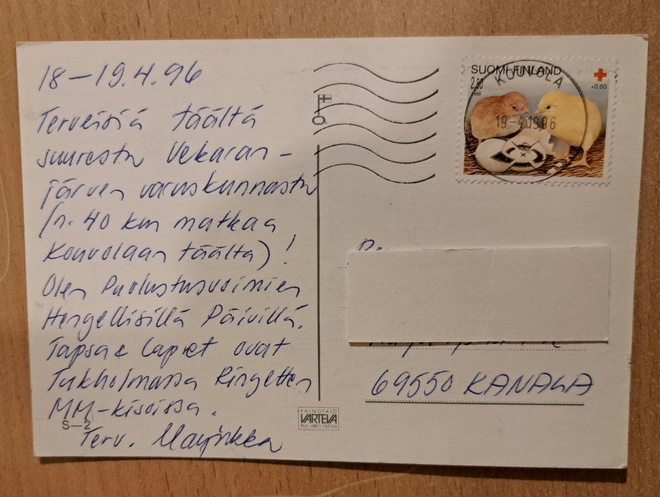 18-19.4.96
Terveisiä täältä
suuresta Vekaran-
järven varuskunnasta
(n. 40 km matkaa
Kouvolaan täältä)!
Olen Puolustusvoimien
Hengellisillä Päivillä.
Tapsa & lapset ovat
Tukholmassa Ringetten
MM-kisoissa.
Terv. Marjukka
S-2
SUOMI FINLAND
2,80
+0,60
KOUVOLA
19.-4.1996
69550 KANALA
PAINOTALO
VARTEVA